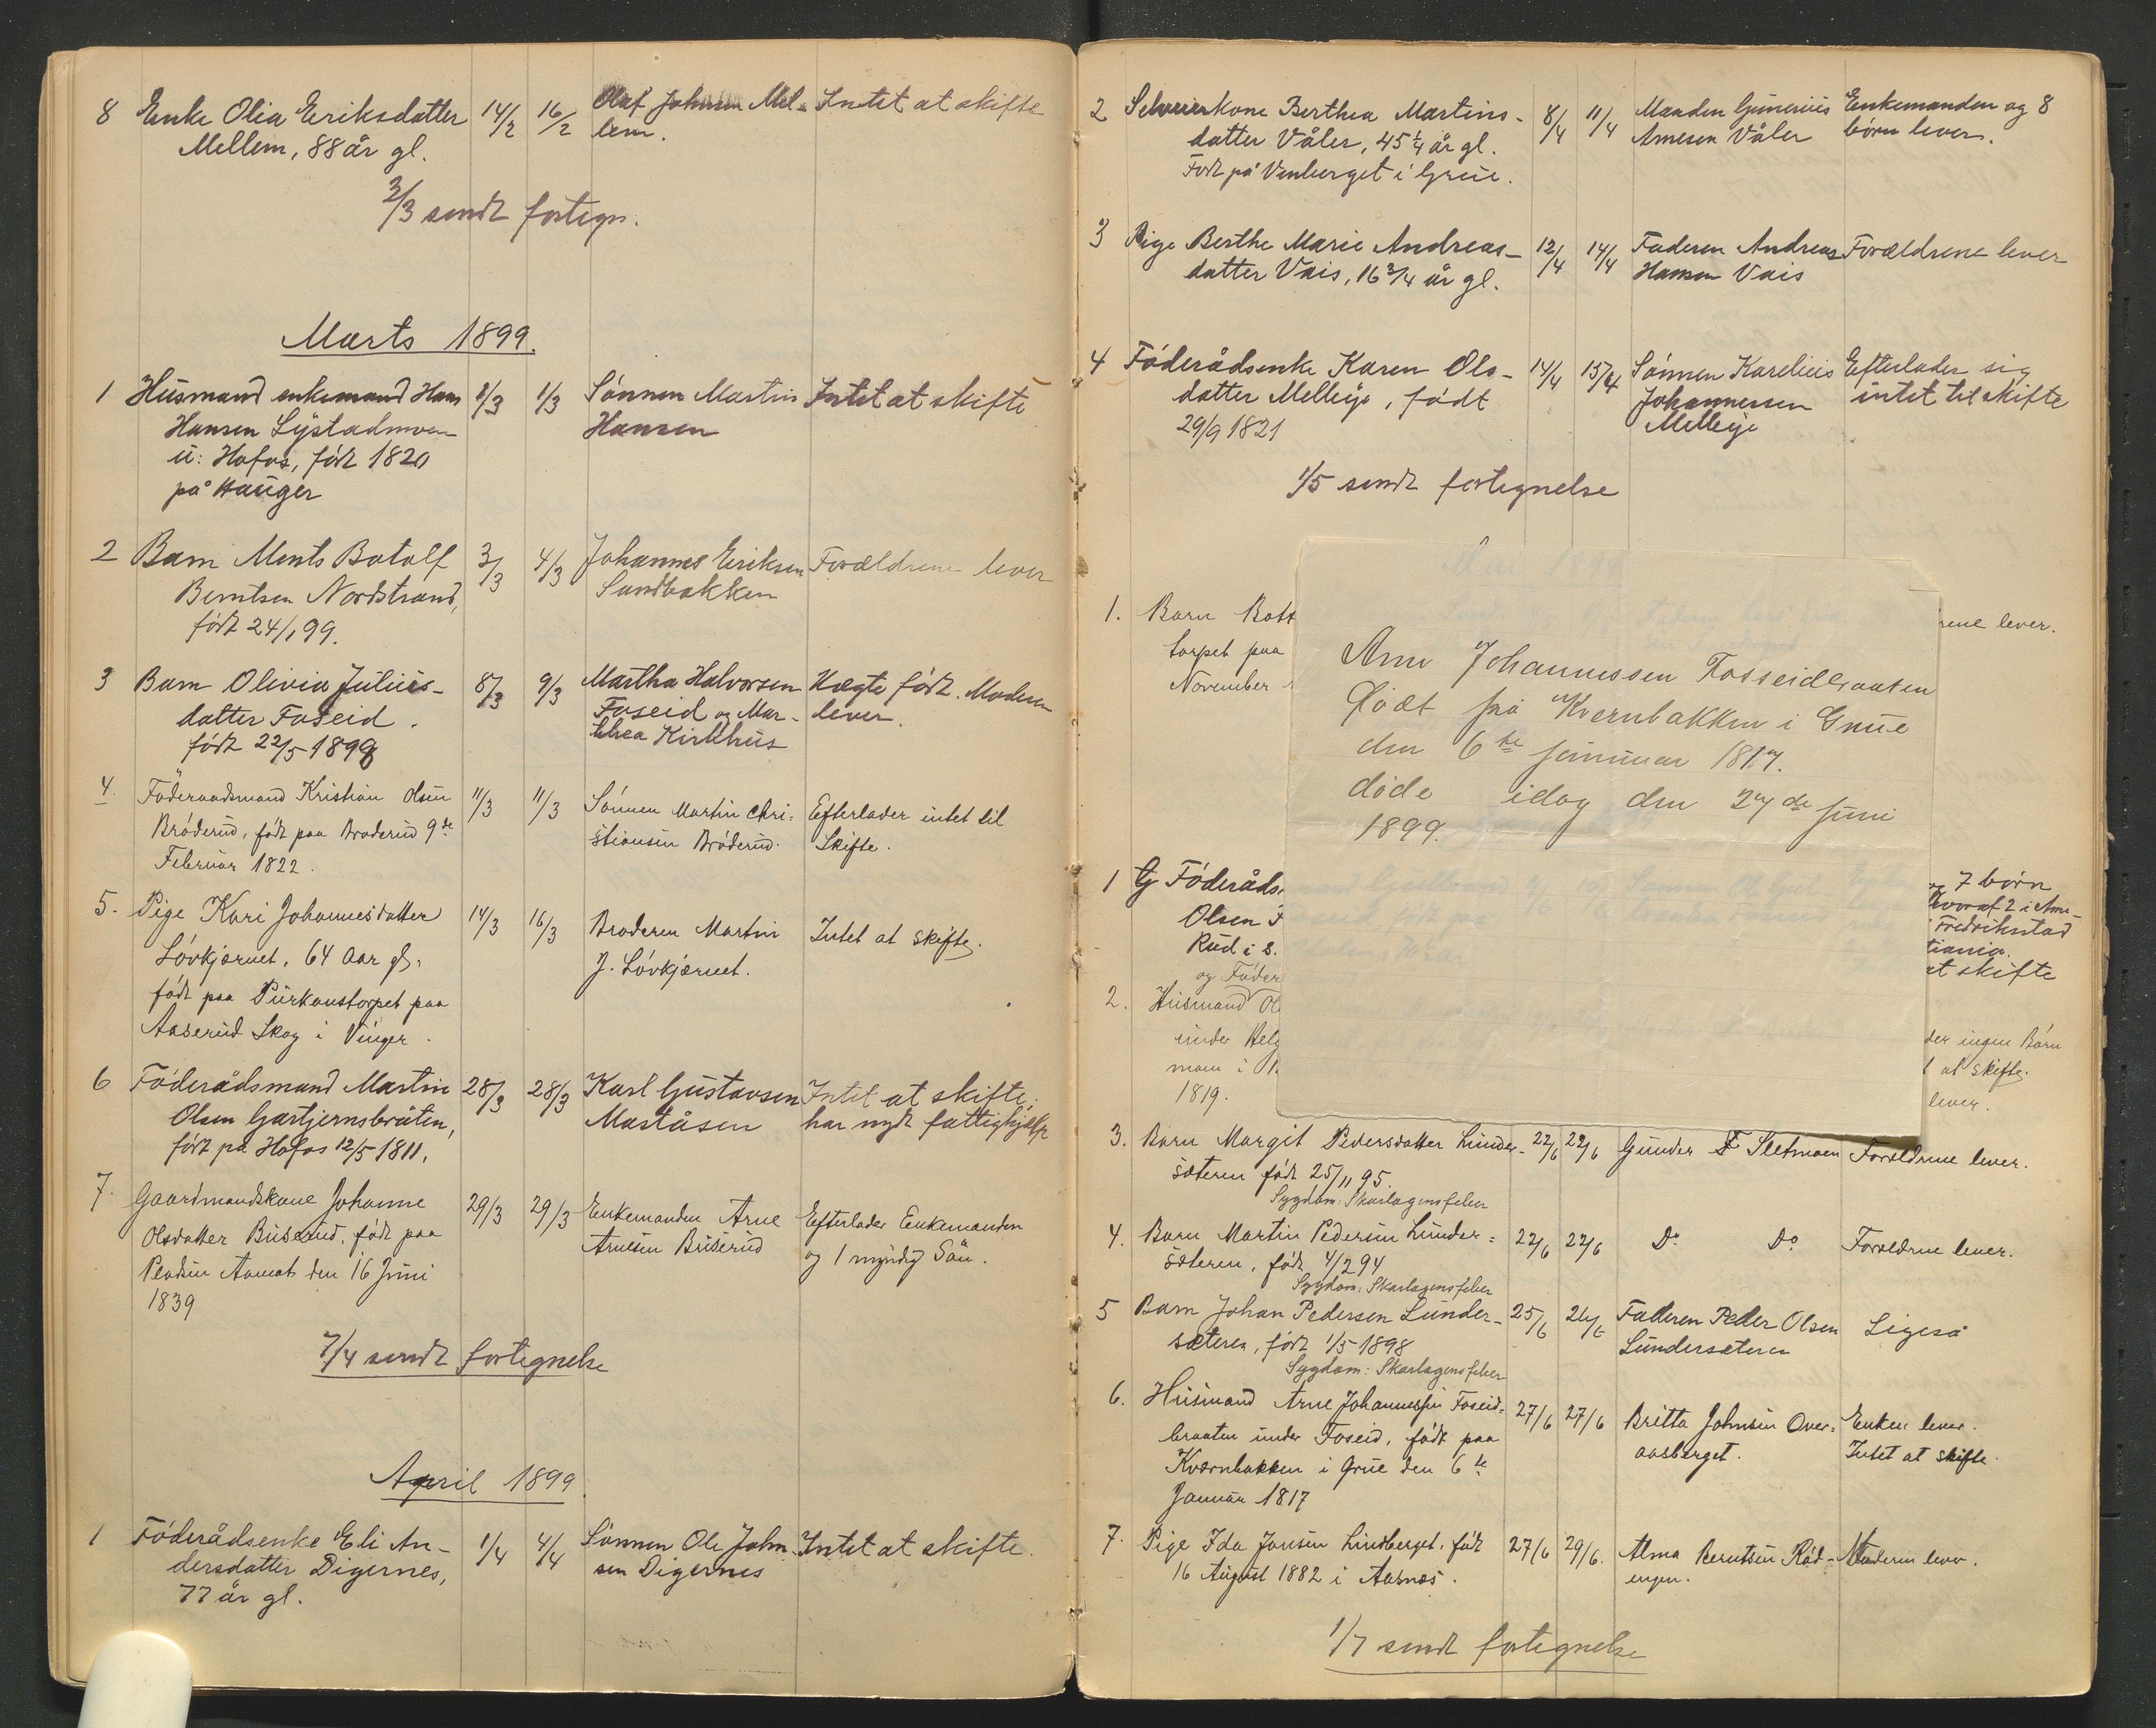 8 Enke Olia Eriksdatter 14/2 16/2 Oluf Johnsen Mel- Intet at skifte
Mellem, 88 år gl. lem.
2/3 sendt fortegn.
Marts 1899.
1 Husmand enkemand Hans 1/3 1/3 Sønnen Martin Intet at skifte
Hansen Lystadmoen Hansen
u: Hofos, født 1820
på Hauger
2 Barn Ments Botolf 3/3 4/3 Johannes Eriksen Forældrene lever
Berntsen Nordstrand, Sandbakken
født 24/1 99.
3 Barn Olivia Julius- 8/3 9/3 Martha Halvorsen Uægte født. Moderen
datter Foseid. Foseid og Mar- lever.
født 22/5 1898 thea Kirkhus
4. Føderaadsmand Kristian Olsen 11/3 11/3 Sønnen Martin Chri- Efterlader intet til
Brøderud, født paa Brøderud 9de stiansen Brøderud. Skifte.
Februar 1822.
5. Pige Kari Johannesdatter 14/3 16/3 Broderen Martin Intet at skifte.
Løvkjærnet, 64 Aar gl, J. Løvkjærnet.
født paa Purkonstorpet paa
Aaserud Skog i Vinger.
6 Føderådsmand Martin 28/3 28/3 Karl Gustavsen Intet at skifte;
Olsen Gartjernsbråten, Maståsen har nydt fattighjælp
født på Hofos 12/5 1811.
7. Gaardmandskone Johanne 29/3 29/3 Enkemanden Arne Efterlader Enkemanden
Olsdatter Buserud, født paa Arnesen Buserud og 1 myndig Søn.
Aamot den 16 Juni
1839
7/4 sendt fortegnelse
April 1899.
1 Føderådsenke Eli An- 1/4 4/4 Sønnen Ole John- Intet at skifte.
dersdatter Digernes, sen Digernes
77 år gl.
2 Selveierkone Berthea Martins- 8/4 11/4 Manden Gunerius Enkemanden og 8
datter Våler, 45 1/4 år gl. Arnesen Våler børn lever.
Født på Venberget i Grue.
3 Pige Berthe Marie Andreas- 12/4 14/4 Faderen Andreas Forældrene lever
datter Vais, 16 3/4 år gl. Hansen Vais
4 Føderådsenke Karen Ols- 14/4 15/4 Sønnen Karelius Efterlader sig
datter Melleije, født Johannessen intet til skifte
29/9 1821 Melleije
1/5 sendt fortegnelse
1. Barn Bott rene lever.
torpet paa
November
Arne Johannessen Fosseidbraaten
født på Kvernbakken i Grue
den 6te januar 1817.
døde idag den 27de juni
1899.
1 G Føderåds 7 børn
Olsen hvoraf 2 i Ame-
Rud i S. Fredrikstad
og Føder tiania.
at skifte
2. Husmand Ol
under Helg der ingen Børn
moen i at skifte.
1819. lever.
3. Barn Margit Pedersdatter Lunder- 22/6 22/6 Gunder Sletmoen Forældrene lever.
sæteren født 25/11 95.
Sygdom: Skarlagensfeber
4. Barn Martin Pedersen Lunder- 22/6 22/6 Do Do Forældrene lever.
sæteren, født 4/2 94
Sygdom: Skarlagensfeber
5 Barn Johan Pedersen Lunder- 25/6 26/6 Faderen Peder Olsen Ligeså
sæteren, født 1/5 1898 Lundersæteren
Sygdom: Skarlagensfeber
6. Husmand Arne Johannessen Foseid- 27/6 27/6 Britta Johnsen Over- Enken lever.
braaten under Foseid, født paa aasberget. Intet at skifte.
Kværnbakken i Grue den 6te
Januar 1817
7. Pige Ida Jonsen Lindberget, født 27/6 29/6. Alma Berntsen Rød- Moderen lever.
16 August 1882 i Aasnes. engen.
1/7 sendt fortegnelse